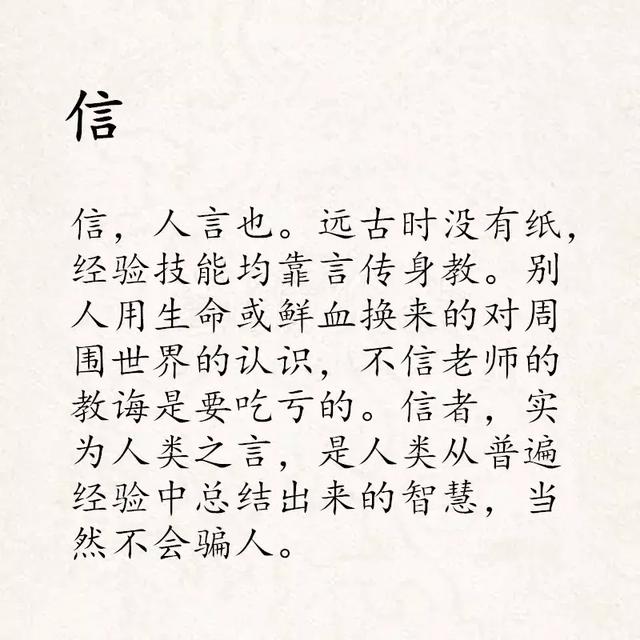 信
信，人言也。远古时没有纸，
经验技能均靠言传身教。别
人用生命或鲜血换来的对周
围世界的认识，不信老师的
教诲是要吃亏的。信者，实
为人类之言，是人类从普遍
经验中总结出来的智慧，当
然不会骗人。